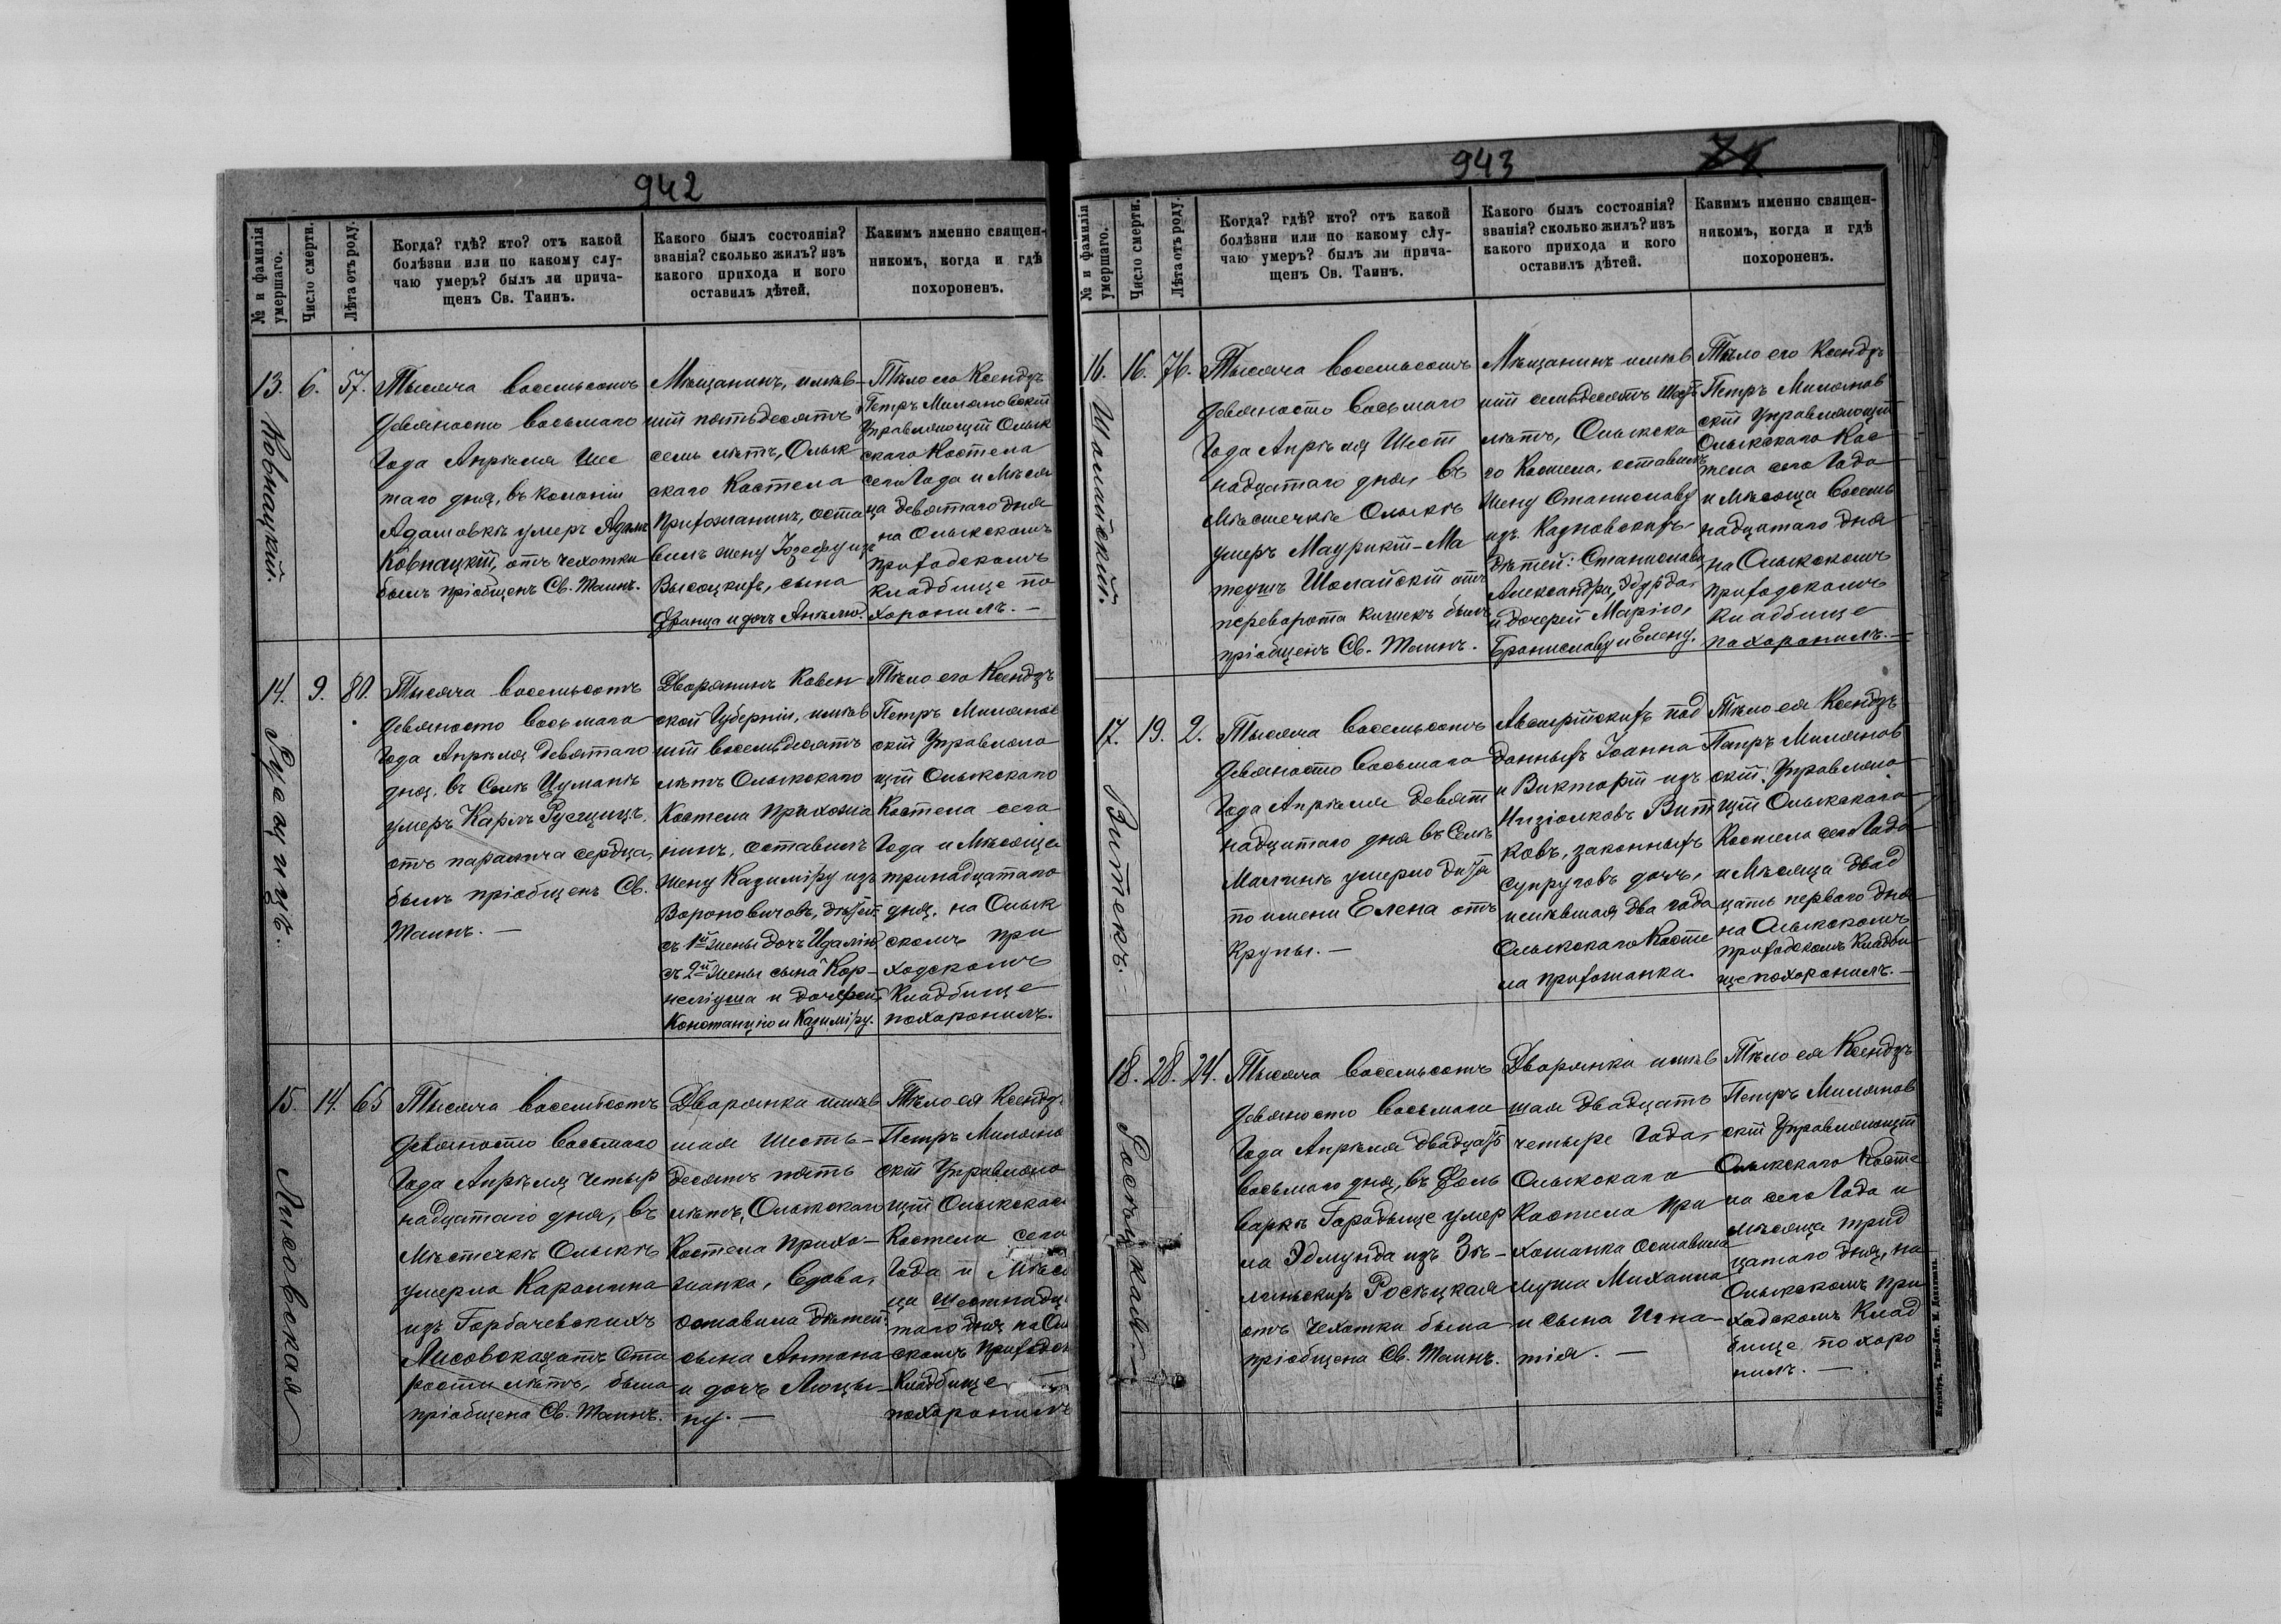 942
№ и фамилія
умершаго.
Число смерти.
Лѣта отъ роду.
Когда? гдѣ? кто? отъ какой
болѣзни или по какому слу-
чаю умеръ? былъ ли прича-
щенъ Св. Таинъ.
Какого былъ состоянія?
званія? сколько жилъ? изъ
какого прихода и кого
оставилъ дѣтей.
Какимъ именно священ-
никомъ, когда и гдѣ
похороненъ.
13.
Ковнацкій.
6.
57.
Тысяча восемьсотъ
девяносто восьмаго
Года Апрѣля Шес
таго дня, въ колоніи
Адамовкѣ умеръ Адамъ
Ковнацкій, отъ чехотки
былъ пріобщенъ Св. Таинъ.
Мѣщанинъ, имѣв-
шій пятьдесятъ
семь лѣтъ, Олык
скаго Костела
Прихожанинъ, оста
вилъ жену Іозефу изъ
Высоцкихъ, сына
Франца и дочь Анѣлю.
Тѣло его Ксендзъ
Петръ Миляновскій
Управляющій Олык
скаго Костела
сего Года и Мѣся
ца девятаго дня
на Олыкскомъ
приходскомъ
кладбище по
хоронилъ. —
14.
Русщицъ.
9.
80.
Тысяча восемьсотъ
девяносто восьмаго
Года Апрѣля девятаго
дня, въ Селѣ Цуманѣ
умеръ Карлъ Русщицъ,
отъ паралича сердца,
былъ пріобщенъ Св.
Таинъ. —
Дворянинъ Ковен
ской Губерніи, имѣв
шій восемьдесятъ
лѣтъ Олыкскаго
Костела Прихожа
нинъ, оставилъ
жену Казиміру изъ
Вороновичовъ, дѣтей
съ 1й жены дочь Идалію
съ 2й жены сына Кор-
неліуша и дочерей
Констанцію и Казиміру.
Тѣло его Ксендзъ
Петръ Милянов
скій Управляю
щій Олыкскаго
Костела сего
Года и Мѣсяца
тринадцатаго
дня, на Олык
скомъ при
ходскомъ
Кладбище
похоронилъ.
15.
Лисовская
14.
65
Тысяча восемьсотъ
девяносто восьмаго
Года Апрѣля четыр
надцатаго дня, въ
Мѣстечкѣ Олыкѣ
умерла Каролина
изъ Горбачевскихъ
Лисовская отъ Ста
рости лѣтъ, была
пріобщена Св. Таинъ.
Дворянка имѣв
шая шесть-
десятъ пять
лѣтъ, Олыкскаго
Костела Прихо-
жанка, Вдова,
оставила дѣтей:
сына Антона
и дочь Люцы-
ну. —
Тѣло ея Ксендзъ
Петръ Миляно
скій Управляю
щій Олыкскаго
Костела сего
Года и Мѣся
ца Шестнадц
таго дня на Ол
скомъ Приходск
Кладбище
похоронилъ
943
№ и фамилія
умершаго.
Число смерти.
Лѣта отъ роду.
Когда? гдѣ? кто? отъ какой
болѣзни или по какому слу-
чаю умеръ? былъ ли прича-
щенъ Св. Таинъ.
Какого былъ состоянія?
званія? сколько жилъ? изъ
какого прихода и кого
оставилъ дѣтей.
Какимъ именно священ-
никомъ, когда и гдѣ
похороненъ.
16.
Шолайскій.
16.
76.
Тысяча восемьсотъ
девяносто восьмаго
Года Апрѣля Шест
надцатаго дня, въ
Мѣстечкѣ Олыкѣ
умеръ Маурикій-Ма
теушъ Шолайскій отъ
переворота кишекъ былъ
пріобщенъ Св. Таинъ.
Мѣщанинъ имѣв
шій семьдесятъ шесть
лѣтъ, Олыкска
го Костела, оставилъ
жену Станиславу
изъ
дѣтей: Станислава
Александра, Эдуарда
и дочерей Марію,
Брониславу и Елену.
Тѣло его Ксендзъ
Петръ Милянов
скій Управляющій
Олыкскаго Кос
тела сего Года
и Мѣсяца Восемь
надцатаго дня
на Олыкскомъ
приходскомъ
кладбище
похоронилъ. —
17.
Витекъ.
19.
2.
Тысяча восемьсотъ
девяносто восьмаго
Года Апрѣля девят
надцатаго дня въ Селѣ
умерло дитя
по имени Елена отъ
Крупы. —
Австрійскихъ под
данныхъ Іоанна
и Викторіи изъ
Низіолковъ Вит
ковъ, законныхъ
супруговъ дочь,
имѣвшая два года
Олыкскаго Косте
ла прихожанка.
Тѣло ея Ксендзъ
Петръ Милянов
скій Управляю
щій Олыкскаго
Костела сего Года
и Мѣсяца двад
цать перваго дня
на Олыкскомъ
приходскомъ Кладби
ще похоронилъ. —
18.
Росѣцкая. —
28.
24.
Тысяча восемьсотъ
девяносто восьмаго
Года Апрѣля двадцать
восьмаго дня, въ Фоль
варкѣ Городыще умер
ла Эдмунда изъ Зѣ-
линьскихъ Росѣцкая
отъ Чехотки была
пріобщена Св. Таинъ.
Дворянка имѣв
шая двадцать
четыре года,
Олыкскаго
Костела При
хожанка оставила
мужа Михаила
и сына Игна-
тія. —
Тѣло ея Ксендзъ
Петръ Милянов
скій Управляющій
Олыкскаго Косте
ла сего Года и
мѣсяца трид
цатаго дня, на
Олыкскомъ при
ходскомъ Клад
бище похоро
нилъ. —